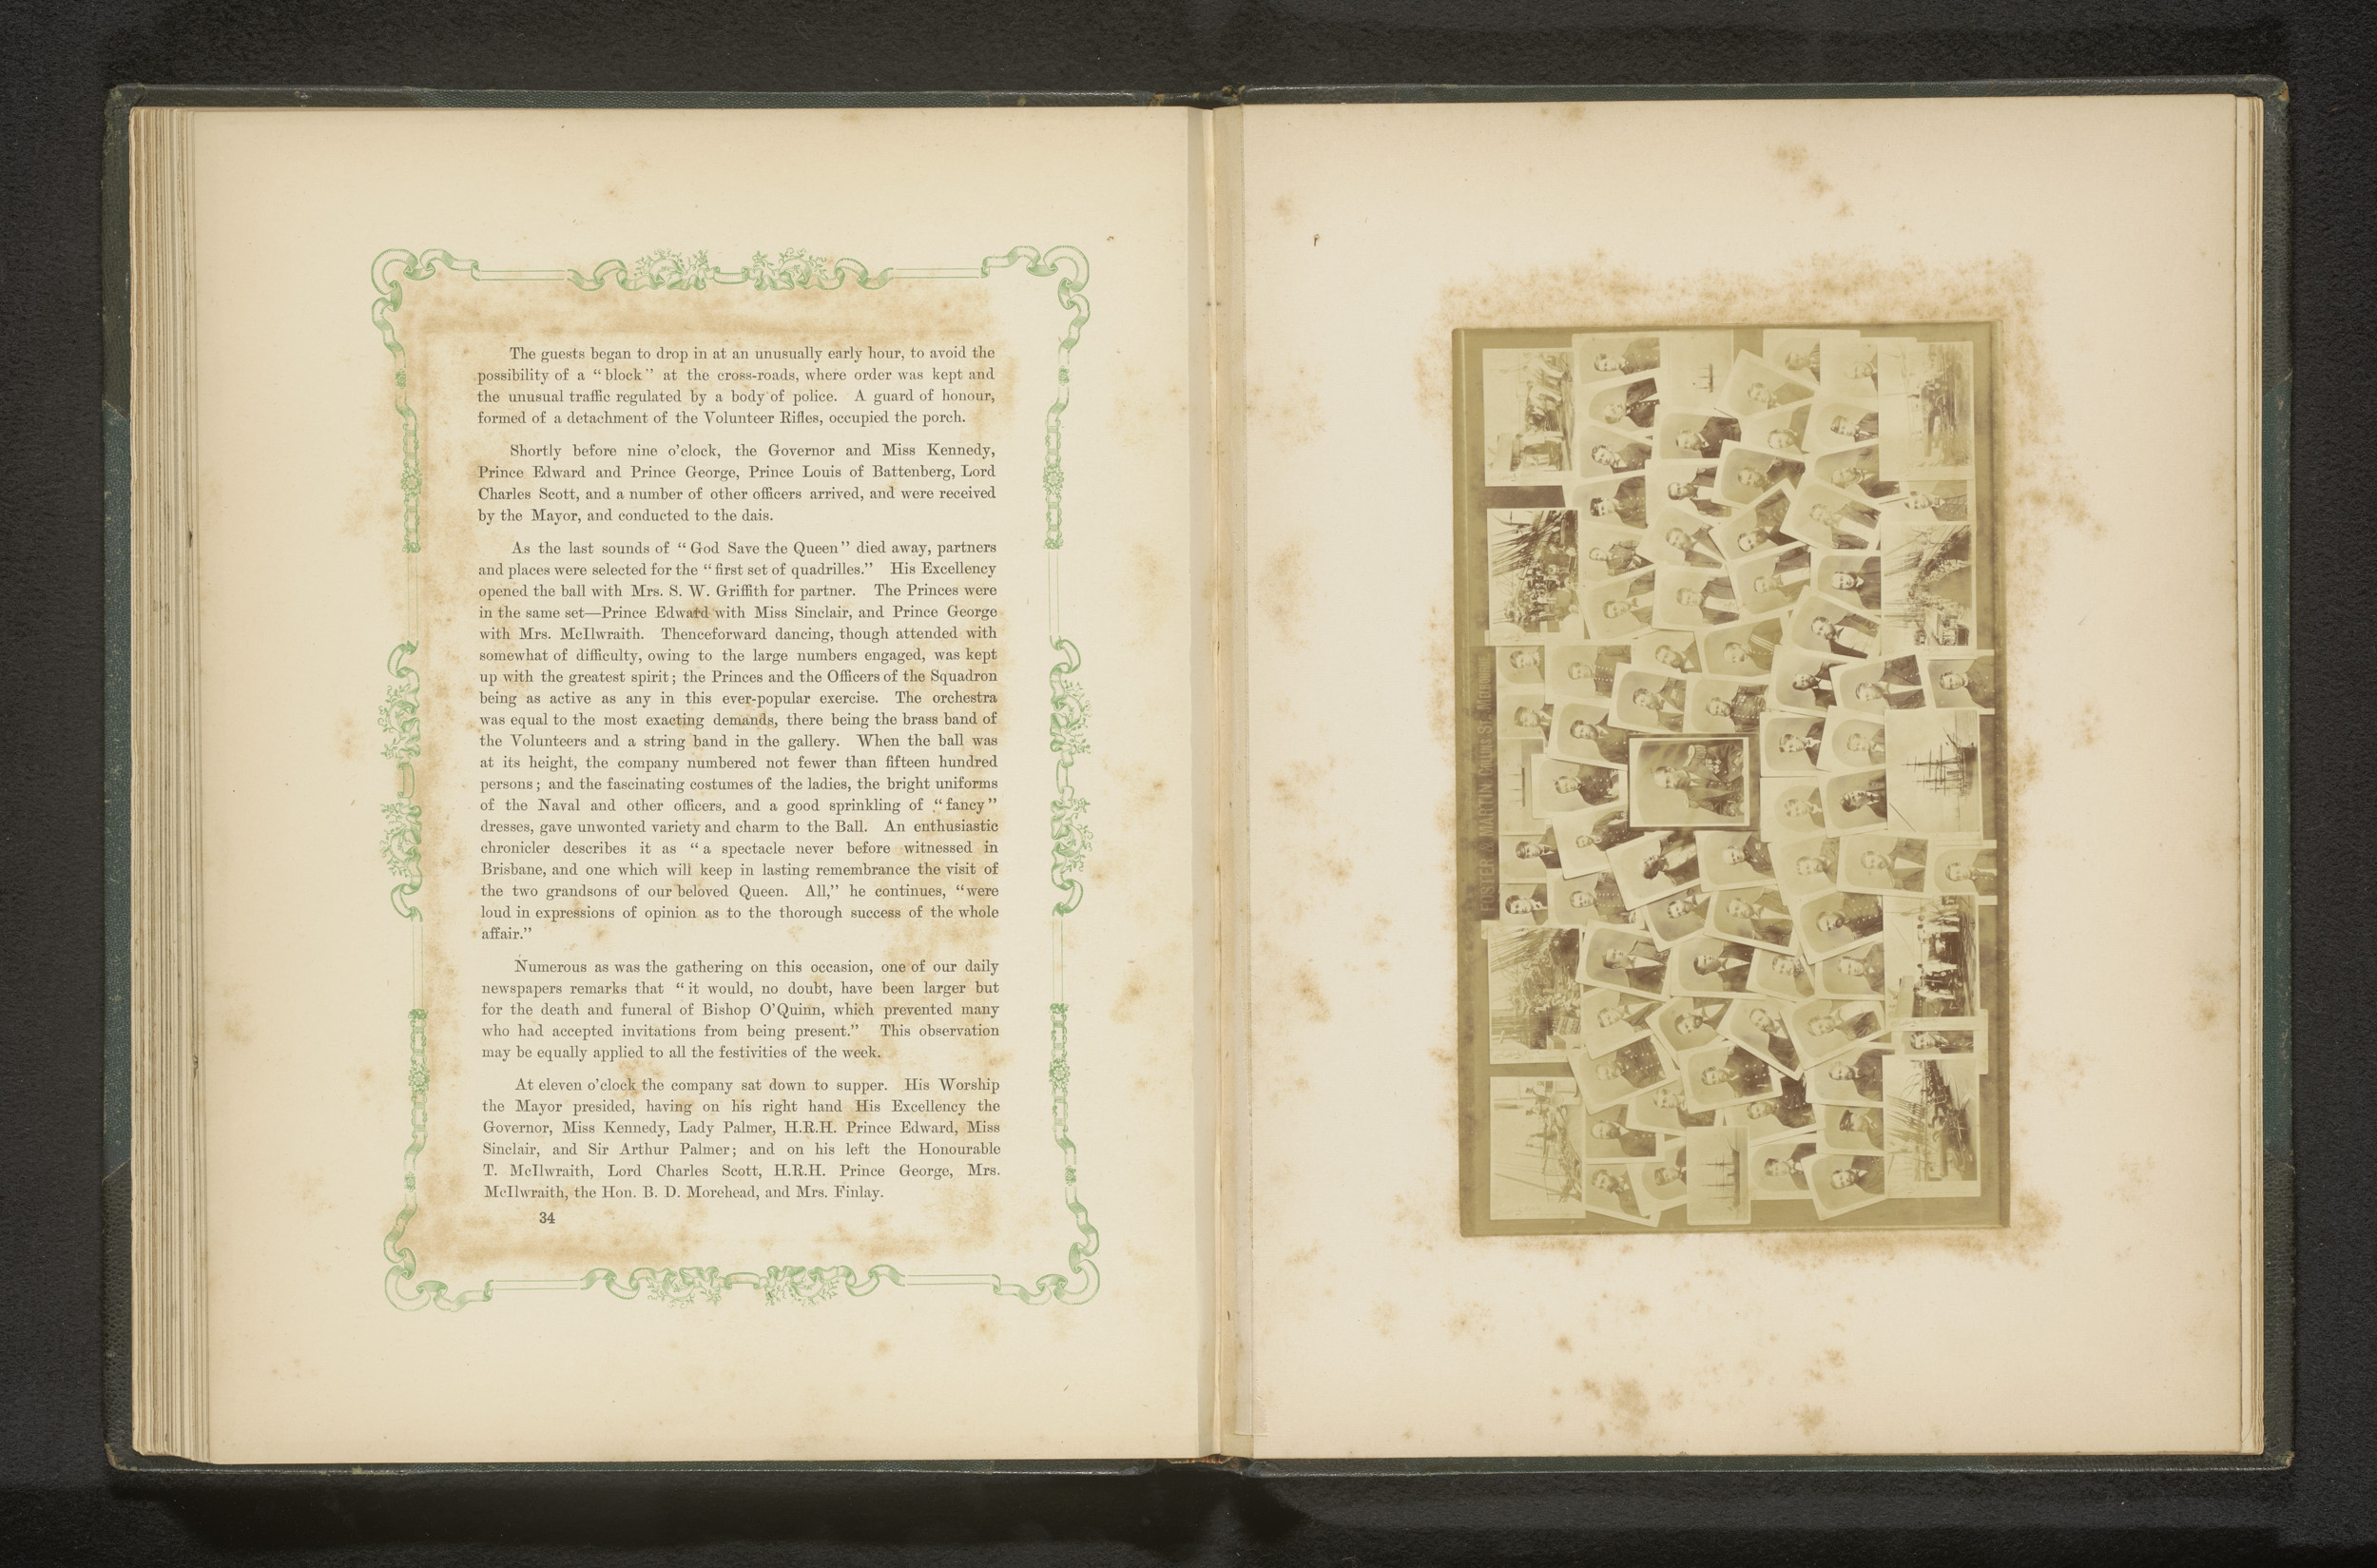 The guests began to drop in at an unusually early hour, to avoid the
possibility of a “block” at the cross-roads, where order was kept and
the unusual traffic regulated by a body of police. A guard of honour,
formed of a detachment of the Volunteer Rifles, occupied the porch.
Shortly before nine o’clock, the Governor and Miss Kennedy,
Prince Edward and Prince George, Prince Louis of Battenberg, Lord
Charles Scott, and a number of other officers arrived, and were received
by the Mayor, and conducted to the dais.
As the last sounds of “God Save the Queen” died away, partners
and places were selected for the “first set of quadrilles.” His Excellency
opened the ball with Mrs. S. W. Griffith for partner. The Princes were
in the same set—Prince Edward with Miss Sinclair, and Prince George
with Mrs. McIlwraith. Thenceforward dancing, though attended with
somewhat of difficulty, owing to the large numbers engaged, was kept
up with the greatest spirit; the Princes and the Officers of the Squadron
being as active as any in this ever-popular exercise. The orchestra
was equal to the most exacting demands, there being the brass band of
the Volunteers and a string band in the gallery. When the ball was
at its height, the company numbered not fewer than fifteen hundred
persons; and the fascinating costumes of the ladies, the bright uniforms
of the Naval and other officers, and a good sprinkling of “fancy”
dresses, gave unwonted variety and charm to the Ball. An enthusiastic
chronicler describes it as “a spectacle never before witnessed in
Brisbane, and one which will keep in lasting remembrance the visit of
the two grandsons of our beloved Queen. All,” he continues, “were
loud in expressions of opinion as to the thorough success of the whole
affair.”
Numerous as was the gathering on this occasion, one of our daily
newspapers remarks that “it would, no doubt, have been larger but
for the death and funeral of Bishop O’Quinn, which prevented many
who had accepted invitations from being present.” This observation
may be equally applied to all the festivities of the week.
At eleven o’clock the company sat down to supper. His Worship
the Mayor presided, having on his right hand His Excellency the
Governor, Miss Kennedy, Lady Palmer, H.R.H. Prince Edward, Miss
Sinclair, and Sir Arthur Palmer; and on his left the Honourable
T. McIlwraith, Lord Charles Scott, H.R.H. Prince George, Mrs.
McIlwraith, the Hon. B. D. Morehead, and Mrs. Finlay.
34
FOSTER & MARTIN COLLINS ST. MELBOURNE